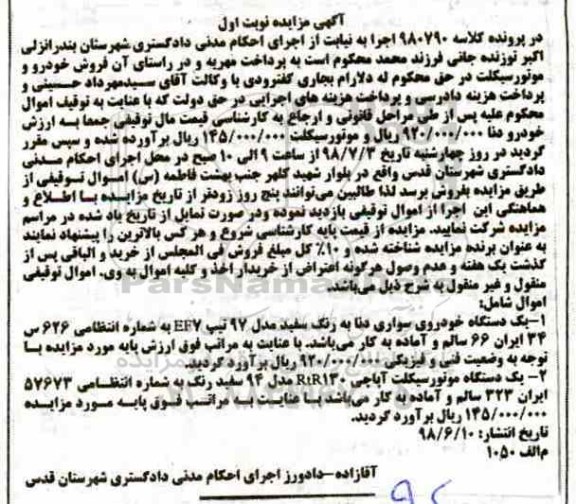 آگهی مزایده نوبت اول
در پرونده کلاسه ۹۸۰۷۹۰ اجرا به نیابت از اجرای احکام مدنی دادگستری شهرستان بندرانزلی
اکبر نوزنده جانی فرزند محمد محکوم است به پرداخت مهریه و در راستای آن فروش خودرو و
موتورسیکلت در حق محکوم له دلارام بجاری کفترودی با وکالت آقای سیدمهرداد حسینی و
پرداخت هزینه دادرسی و پرداخت هزینه های اجرایی در حق دولت که با عنایت به توقیف اموال
محکوم علیه پس از طی مراحل قانونی و ارجاع به کارشناسی قیمت مال توقیفی جمعا به ارزش
خودرو دنا ۹۲۰/۰۰۰/۰۰۰ ریال و موتورسیکلت ۱۴۵/۰۰۰/۰۰۰ ریال برآورده شده و سپس مقرر
گردید در روز چهارشنبه تاریخ ۹۸/۷/۳ از ساعت ۹ الی ۱۰ صبح در محل اجرای احکام مدنی
دادگستری شهرستان قدس واقع در بلوار شهید کلهر جنب بهشت فاطمه (س) اموال توقیفی از
طریق مزایده بفروش برسد لذا طالبین می‌توانند پنج روز زودتر از تاریخ مزایده با اطلاع و
هماهنگی این اجرا از اموال توقیفی بازدید نموده ودر صورت تمایل از تاریخ یاد شده در مراسم
مزایده شرکت نمایید. مزایده از قیمت پایه کارشناسی شروع و هر کس بالاترین را پیشنهاد نمایند
به عنوان برنده مزایده شناخته شده و ۱۰٪ کل مبلغ فروش فی المجلس از خرید و الباقی پس از
گذشت یک هفته و عدم وصول هرگونه اعتراض از خریدار اخذ و کلیه اموال به وی. اموال توقیفی
منقول و غیر منقول به شرح ذیل می‌باشد.
اموال شامل:
۱-یک دستگاه خودروی سواری دنا به رنگ سفید مدل ۹۷ تیپ EF۷ به شماره انتظامی ۶۲۶ س
۳۴ ایران ۶۶ سالم و آماده به کار می‌باشد. با عنایت به مراتب فوق ارزش پایه مورد مزایده با
توجه به وضعیت فنی و فیزیکی ۹۲۰/۰۰۰/۰۰۰ ریال برآورد گردید.
۲- یک دستگاه موتورسیکلت آپاچی RtR۱۳۰ مدل ۹۴ سفید رنگ به شماره انتظامی ۵۷۶۷۳
ایران ۳۲۳ سالم و آماده به کار می‌باشد با عنایت به مراتب فوق پایه مورد مزایده
۱۴۵/۰۰۰/۰۰۰ ریال برآورد گردید.
تاریخ انتشار: ۹۸/۶/۱۰
م‌الف ۱۰۵۰
آقازاده-دادورز اجرای احکام مدنی دادگستری شهرستان قدس